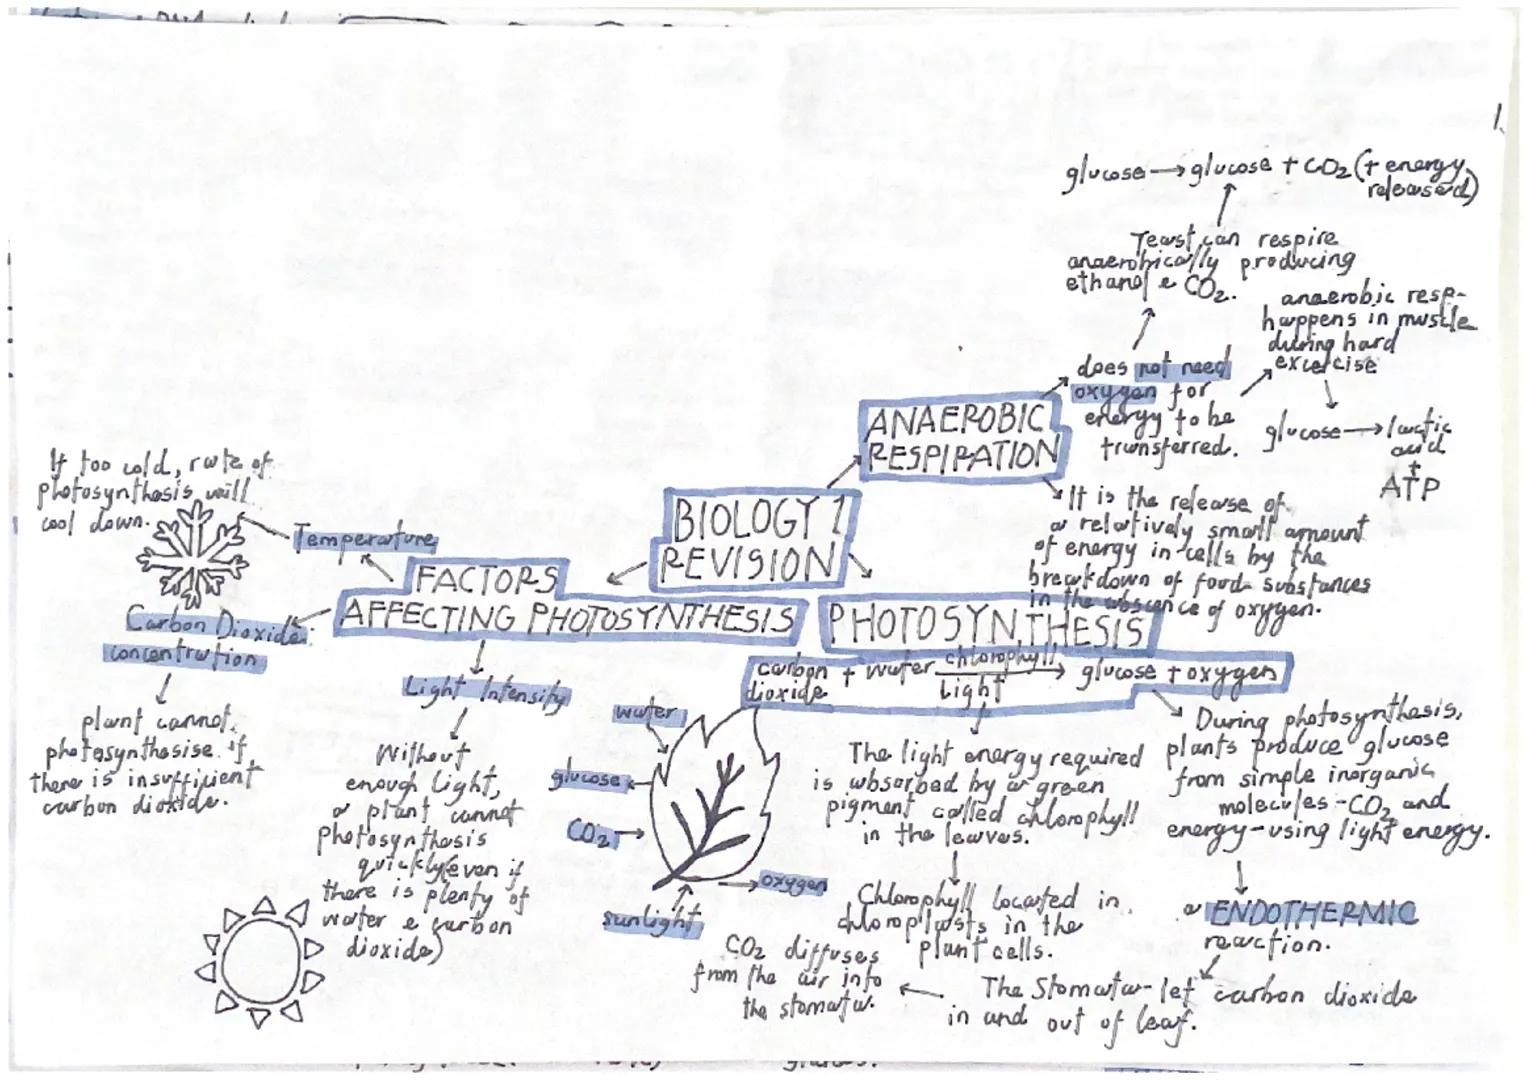 1.
glucose → glucose + CO2 (+ energy
released)
Yeast can respire
anaerobically producing
ethanol & CO2.
anaerobic resp-
happens in muscle
during hard
exercise
glucose → lactic
acid
+
ATP
does not need
oxygen for
energy to be
transferred.
ANAEROBIC
RESPIRATION
It is the release of
a relatively small amount
of energy in cells by the
breakdown of food substances
in the absence of oxygen.
BIOLOGY 1
REVISION
FACTORS
AFFECTING PHOTOSYNTHESIS
Temperature
If too cold, rate of
photosynthesis will
cool down.
Carbon Dioxide
concentration
plant cannot
photosynthesise if
there is insufficient
carbon dioxide.
Light Intensity
Without
enough light,
a plant cannot
photosynthesis
quickly(even if
there is plenty of
water & carbon
dioxide)
PHOTOSYNTHESIS
carbon dioxide + water chlorophyll → glucose + oxygen
light
water
glucose
CO2
sunlight
oxygen
The light energy required
is absorbed by a green
pigment called chlorophyll
in the leaves.
Chlorophyll located in
chloroplasts in the
plant cells.
During photosynthesis,
plants produce glucose
from simple inorganic
molecules - CO2 and
energy - using light energy.
a ENDOTHERMIC
reaction.
The Stomata - let carbon dioxide
in and out of leaf.
CO2 diffuses
from the air into
the stomata.